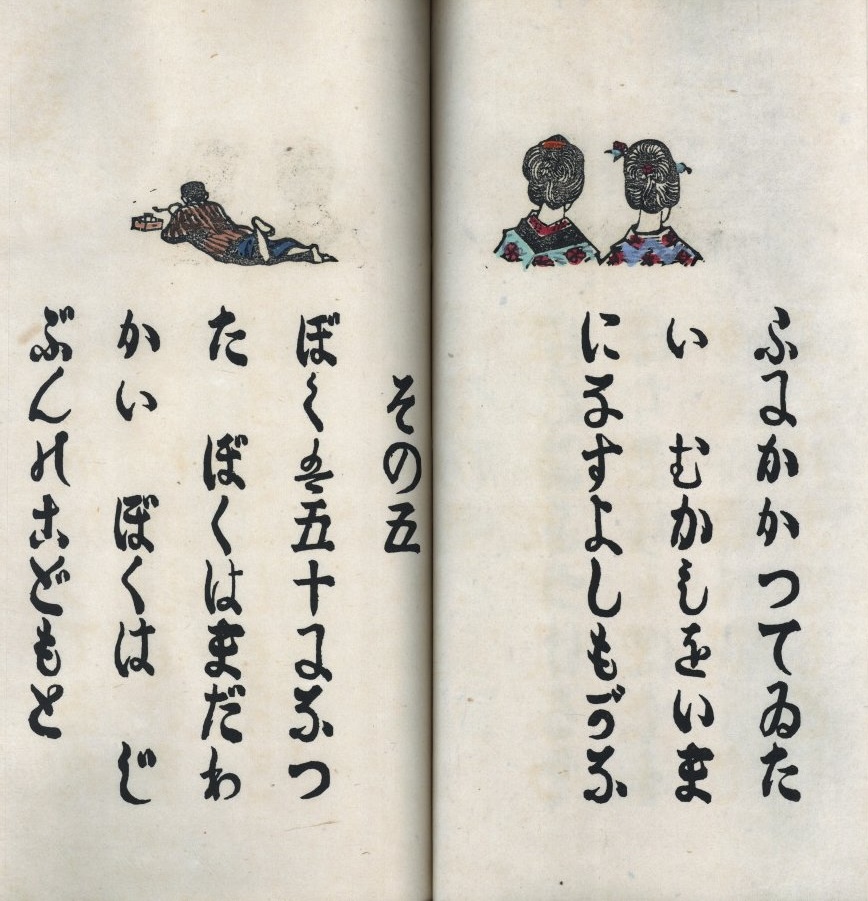 ふにかかつてゐた
い　むかしをいま
になすよしもがな
その五
ぼくは五十になつ
た　ぼくはまだわ
かい　ぼくは　じ
ぶんのこどもと